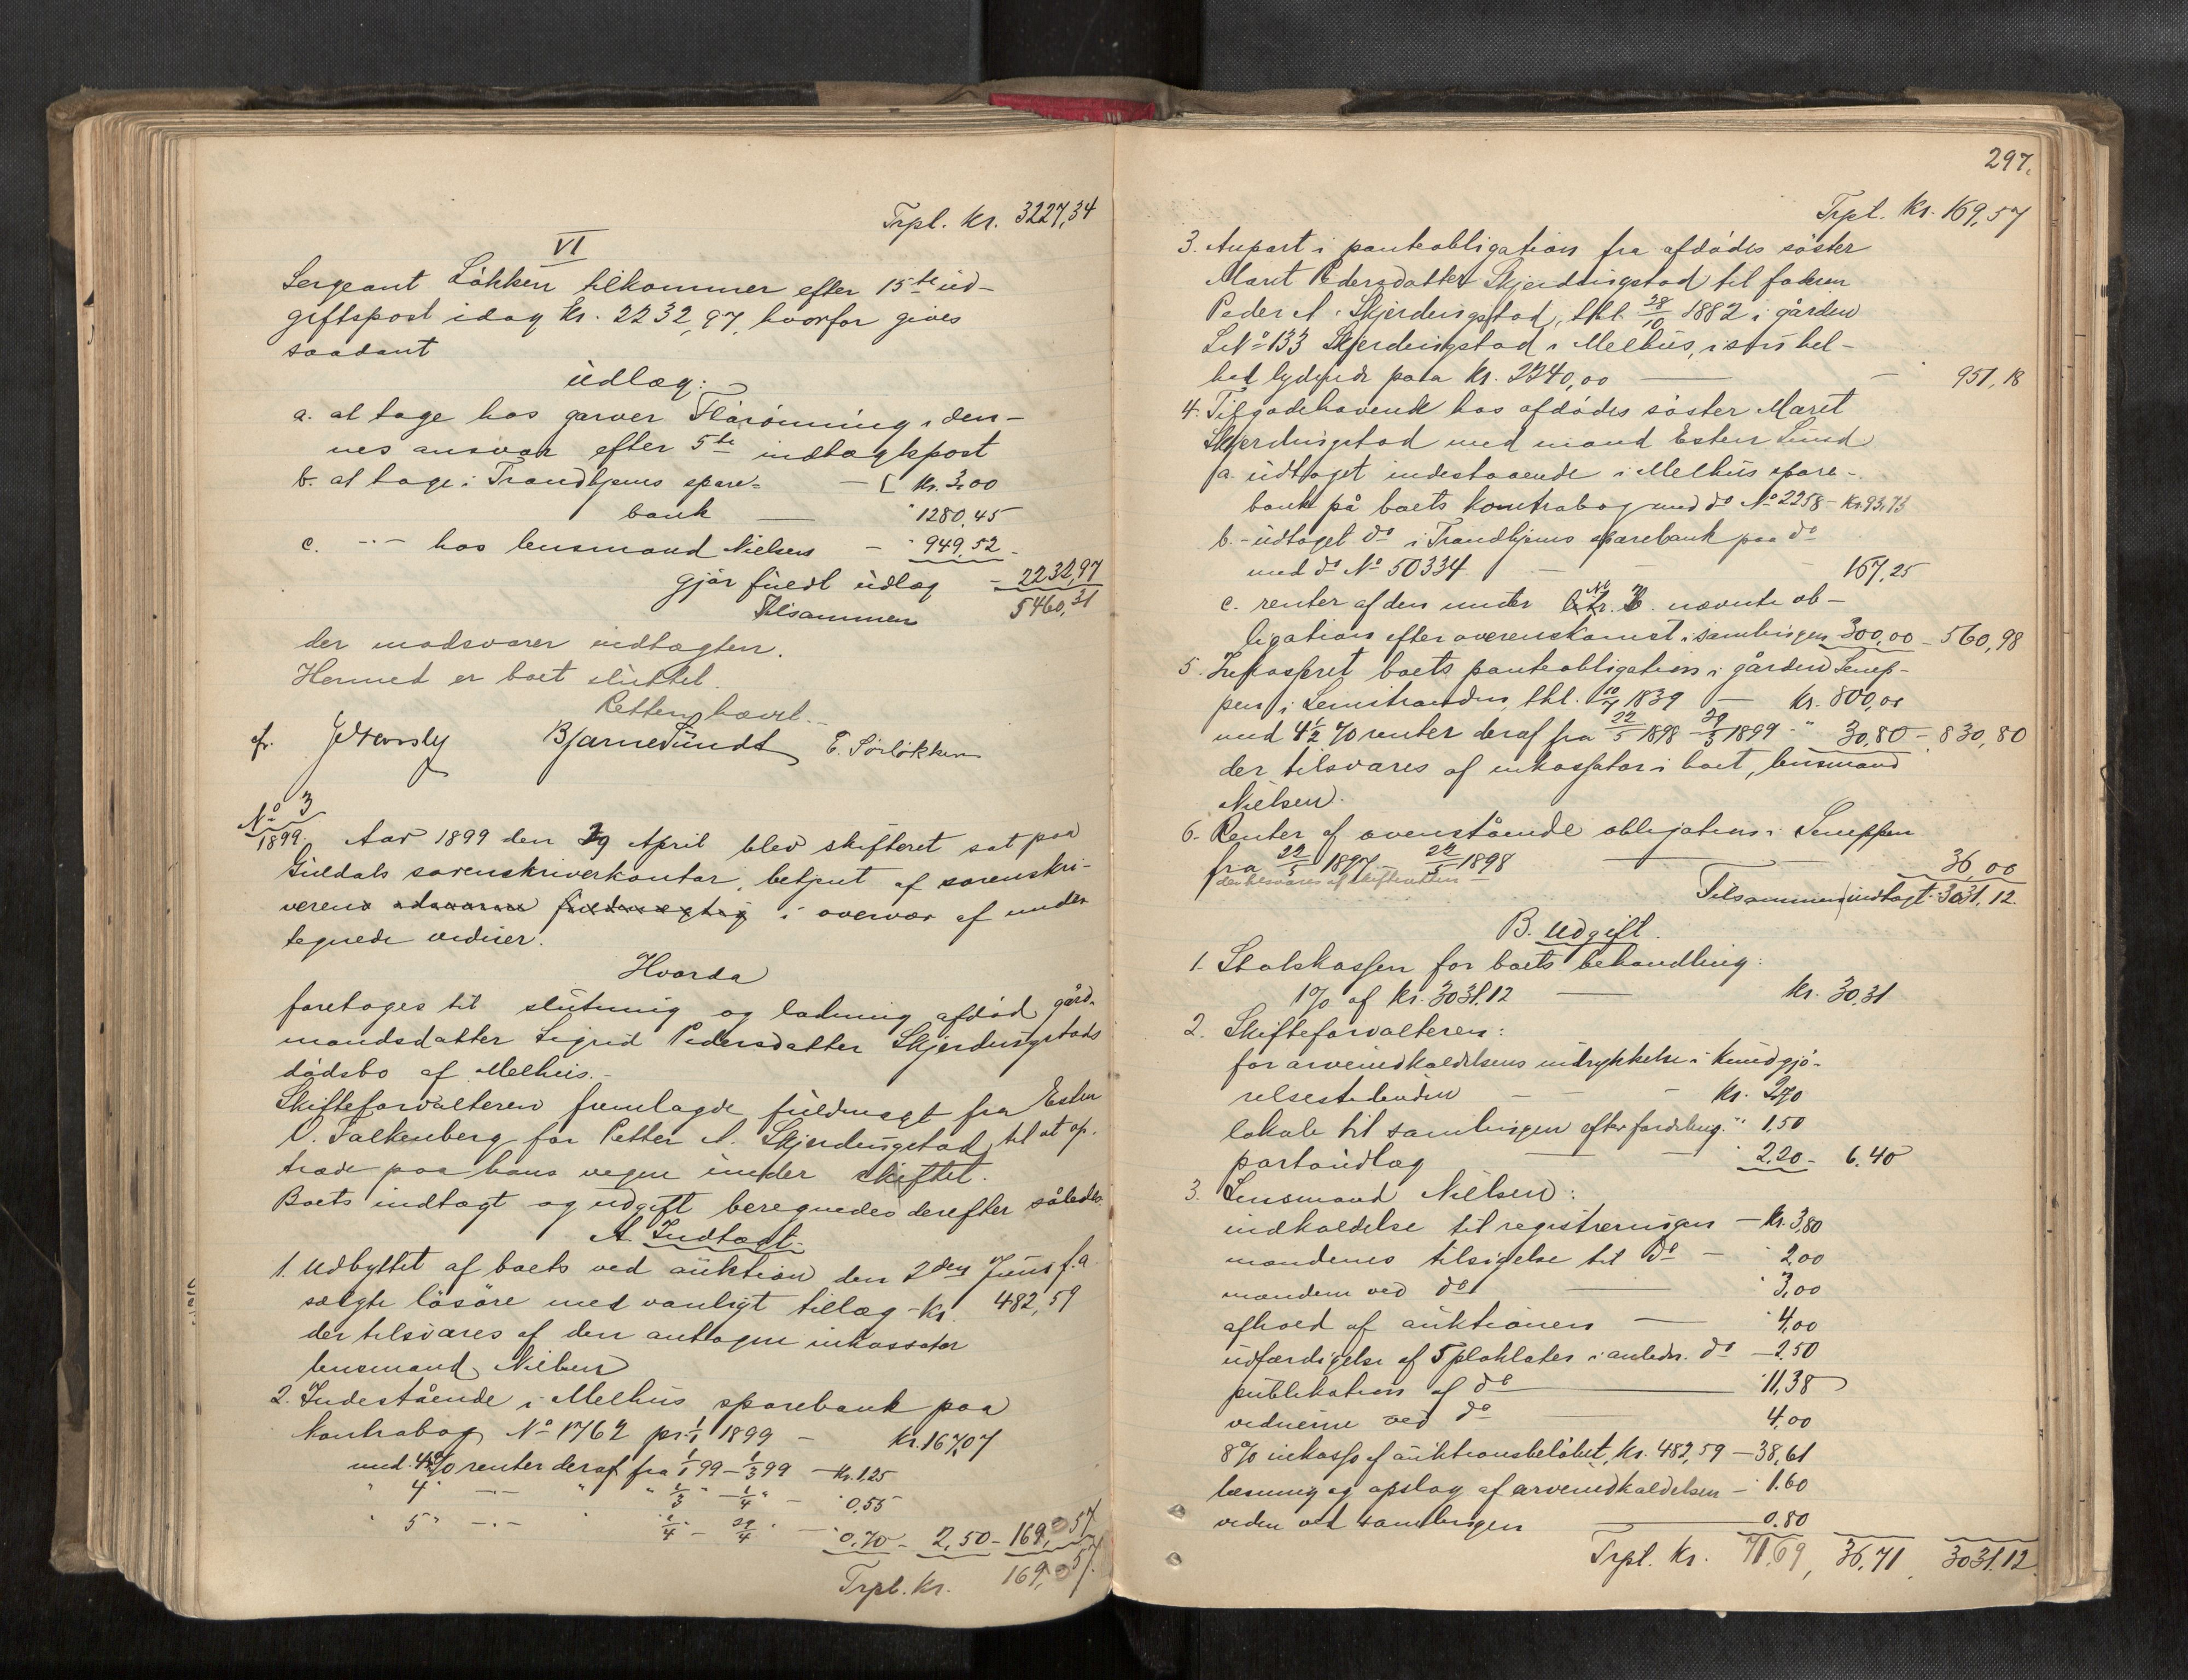 Trpl. Kr. 3227,34
VI
Sergeant Løkken tilkommer efter 15de ud-
giftspost idag Kr. 2232,97, hvorfor gives
saadant
udlæg:
a. at tage hos garver Flårønning i den-
nes ansvar efter 5te indtægtspost
Kr. 3,00
b. at tage i Trondhjems spare=
bank — " 1280,45
c. -"- hos lensmand Nielsen - " 949,52
gjør fuldt udlæg - 2232,97
Tilsammen 5460,31
der modsvarer indtægten.
Hermed er boet sluttet.
Retten hævet.
cfr. Bjarne Sundt E. Sørløkken
No 3
1899. Aar 1899 den 29 April blev skifteret sat paa
Guldals sorenskriverkontor, betjent af sorenskri-
veren i overvær af under
tegnede vidner.
Hvorda
foretoges til slutning og lodning afdød gård-
mandsdatter Sigrid Pedersdatter Skjerdingstads
dødsbo af Melhus.-
Skifteforvalteren fremlagde fuldmagt fra Esten
O. Falkenberg for Petter A. Skjerdingstad til at op-
træde paa hans vegne under skiftet.
Boets indtægt og udgift beregnedes derefter således
A. Indtægt.
1. Udbyttet af boets ved auktion den 2den Juni f.a.
solgte løsøre med vanligt tillæg - Kr. 482,59
der tilsvares af den antagne inkassator
lensmand Nielsen
2. Indestående i Melhus sparebank paa
Kontrabog No 1762 pr. 1/1 1899 - Kr. 167,07
med 4½% renter deraf fra 1/1 99 - 1/3 99 - Kr. 1,25
" 4" -"- " " 1/3 " - 1/4 " - " 0,55
" 5" -"- " " 1/4 " - 29/4 " - " 0,70 - 2,50 - 169,57
Trpl. Kr. 169,57
297.
Trpl. Kr. 169,57
3. Anpart i panteobligation fra afdødes søster
Marit Pedersdatter Skjerdingstad til faderen
Peder A. Skjerdingstad, thl. 28/10 1882 i gården
L.No 133 Skjerdingstad i Melhus, i sin hel-
hed lydende paa Kr. 2240,00 — - " 951,18
4. Tilgodehavende hos afdødes søster Marit
Skjerdingstad med mand Esten Lund
a. udtaget indestaaende i Melhus spare-
bank på boets kontrabog med do No 2258 - Kr. 93,73
b. - udtaget do i Trondhjems sparebank paa do
med do No 50334 - - - 167,25
c. renter af den under No 3. nævnte ob-
ligation efter overenskomst i samlingen 300,00 - 560,98
5. Inkasseret boets panteobligation i gården Semp-
pen i Leinstranden, thl. 10/7 1839 — Kr. 800,00
med 4½ % renter deraf fra 22/5 1898 - 29/3 1899 - " 30,80 - 830,80
der tilsvares af inkassator i boet, lensmand
Nielsen.
6. Renter af ovenstående obligation i Semppen
fra 22/5 1897 - 22/5 1898 — 36,00
der tilsvares af skifteretten
Tilsammen indtægt 3031,12.
B. Udgift.
1. Statskassen for boets behandling:
1% af Kr. 3031,12 — Kr. 30,31
2. Skifteforvalteren:
for arveindkaldelsens indrykkelse i Kundgjø-
relsestidenden - - - Kr. 2,70
lokale til samlingen efter fordeling - " 1,50
portoudlæg — - " 2,20 - 6,40
3. Lensmand Nielsen:
indkaldelse til registreringen - Kr. 3,80
mændenes tilsigelse til do - " 2,00
mændene ved do — " 3,00
afhold af auktionen — " 4,00
udfærdigelse af 5 plakater i anledn. do - 2,50
publikation af do — " 11,38
vidnerne ved do — 4,00
8% inkasso af auktionsbeløbet, Kr. 482,59 - 38,61
læsning og opslag af arveindkaldelsen - " 1,60
vidne ved samlingen — 0,80
Trpl. Kr. 71,69, 36,71, 3031,12